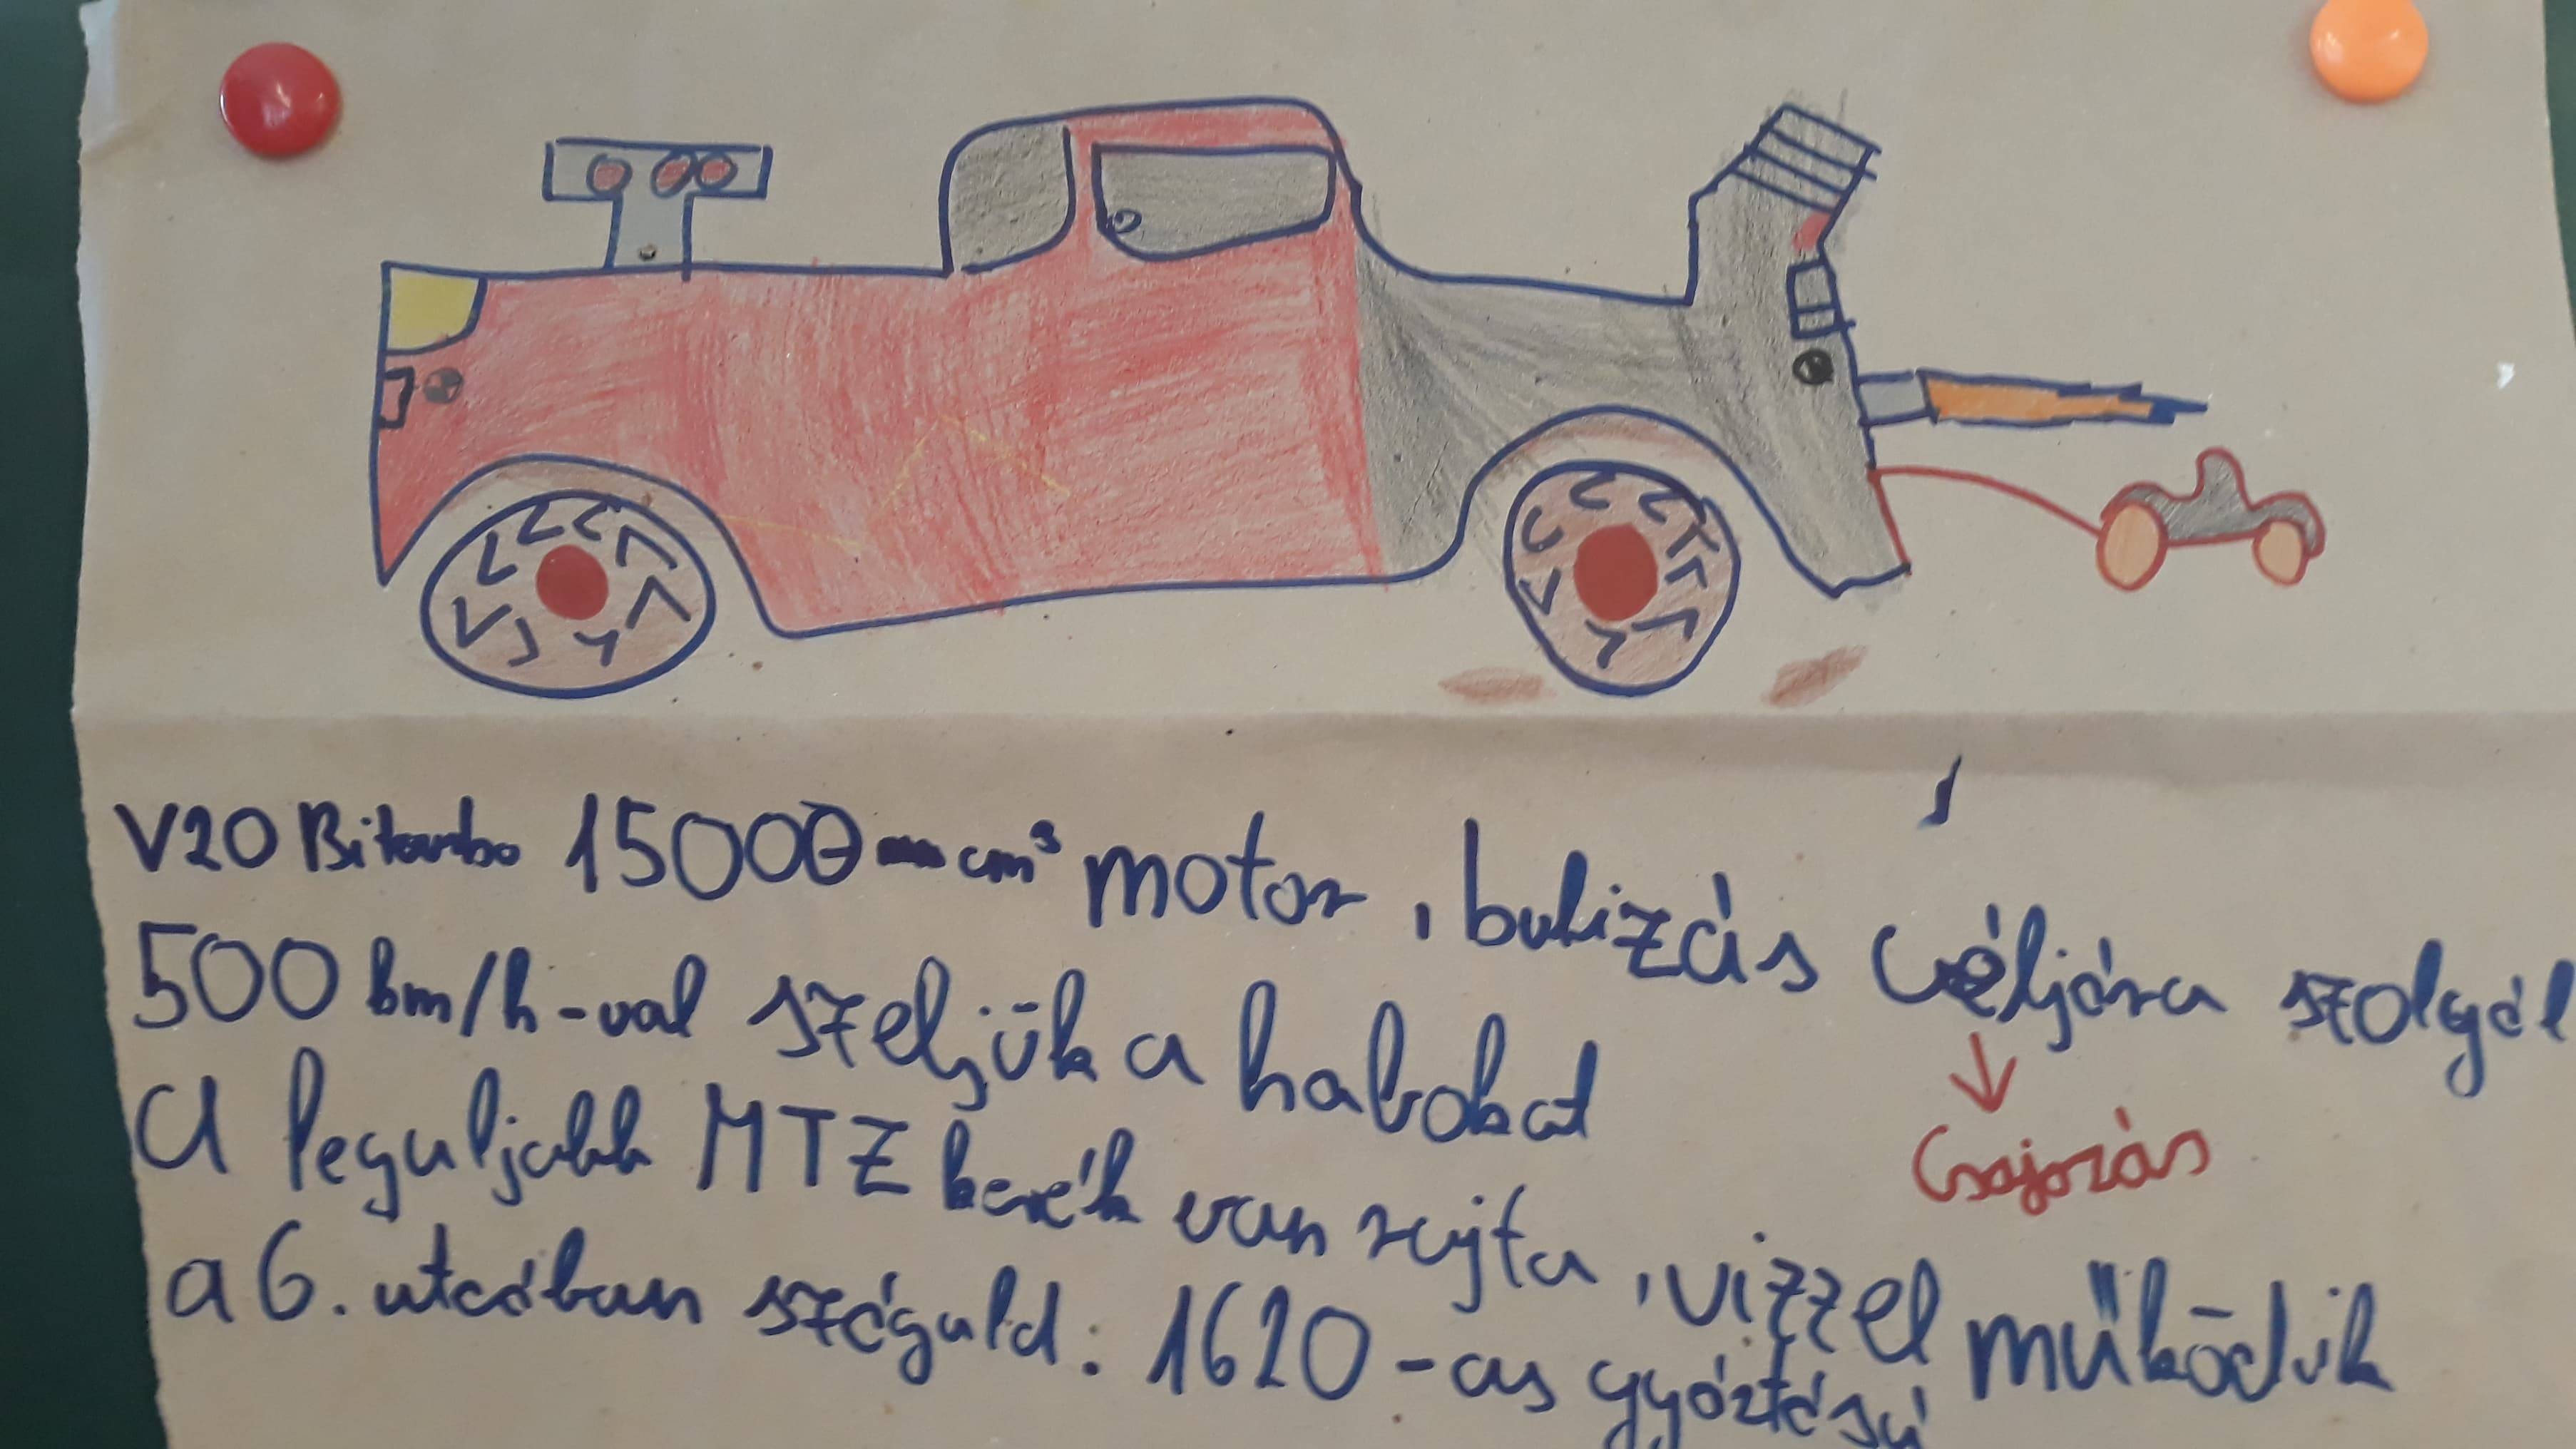 V20 Biturbo 15000 cm³ motor, bulizás céljára szolgál
500 km/h-val szeljük a habokat
↓
Csajozás
A legújabb MTZ kerék van rajta, vizzel működik
a 6. utcában száguld: 1620-as gyártású